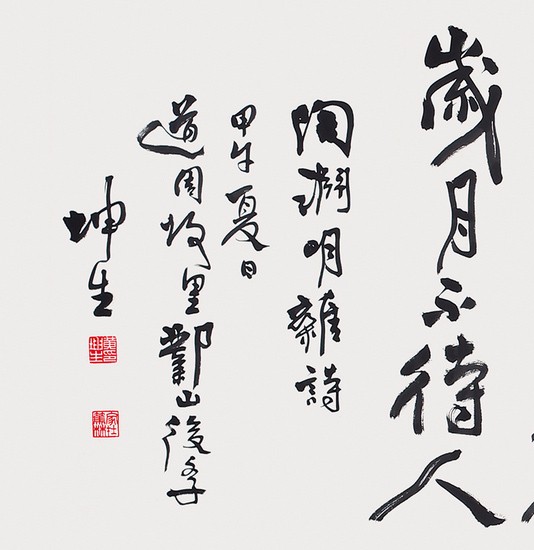 歲月不待人
陶淵明雜詩
甲午夏日
道周故里鄴山後季
坤生